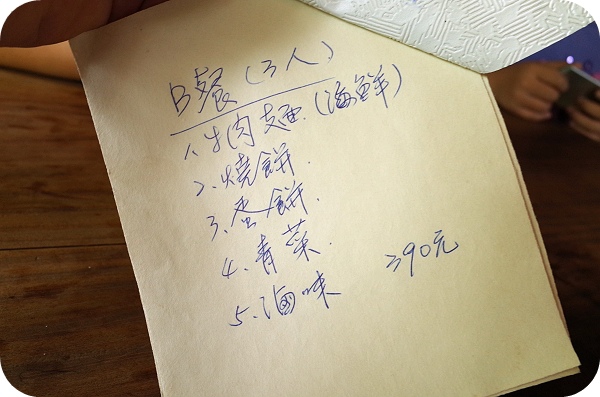 B餐(3人)
1.牛肉麺.(海鮮)
2.燒餅.
3.蛋餅.
4.青菜.
5.滷味 390元